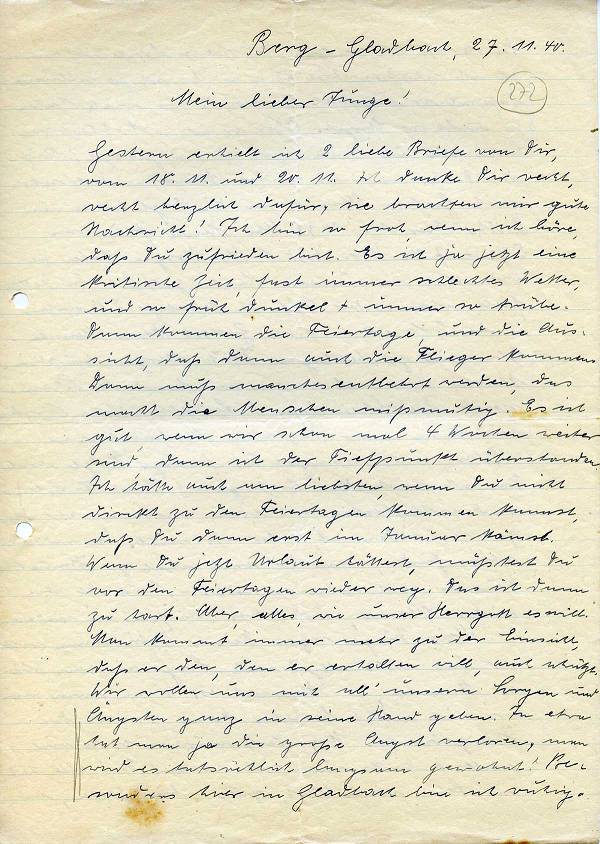 Berg-Gladbach, 27.11.40.
272
Mein lieber Junge!
Gestern erhielt ich 2 liebe Briefe von Dir,
vom 18.11. und 20.11. Ich danke Dir recht,
recht herzlich dafür, sie brachten mir gute
Nachricht! Ich bin so froh, wenn ich höre,
daß Du zufrieden bist. Es ist ja jetzt eine
kritische Zeit, fast immer schlechtes Wetter,
und so früh dunkel + immer so trübe.
Dann kommen die Feiertage und die Aus-
sicht, daß dann auch die Flieger kommen.
Dann muß manches entbehrt werden, das
macht die Menschen mißmutig. Es ist
gut, wenn wir schon mal 4 Wochen weiter
sind, dann ist der Tiefpunkt überstanden.
Ich hätte auch am liebsten, wenn Du nicht
direkt zu den Feiertagen kommen kannst,
daß Du dann erst im Januar kämst.
Wenn Du jetzt Urlaub hättest, müßtest Du
vor den Feiertagen wieder weg. Das ist dann
zu hart. Aber, alles, wie unser Herrgott es will.
Man kommt immer mehr zu der Einsicht,
daß er den, den er erhalten will, auch schützt.
Wir wollen uns mit all' unsern Sorgen und
Ängsten ganz in seine Hand geben. In etwa
hat man ja die große Angst verloren, man
wird es tatsächlich langsam gewohnt! Be-
sonders hier in Gladbach bin ich ruhig.